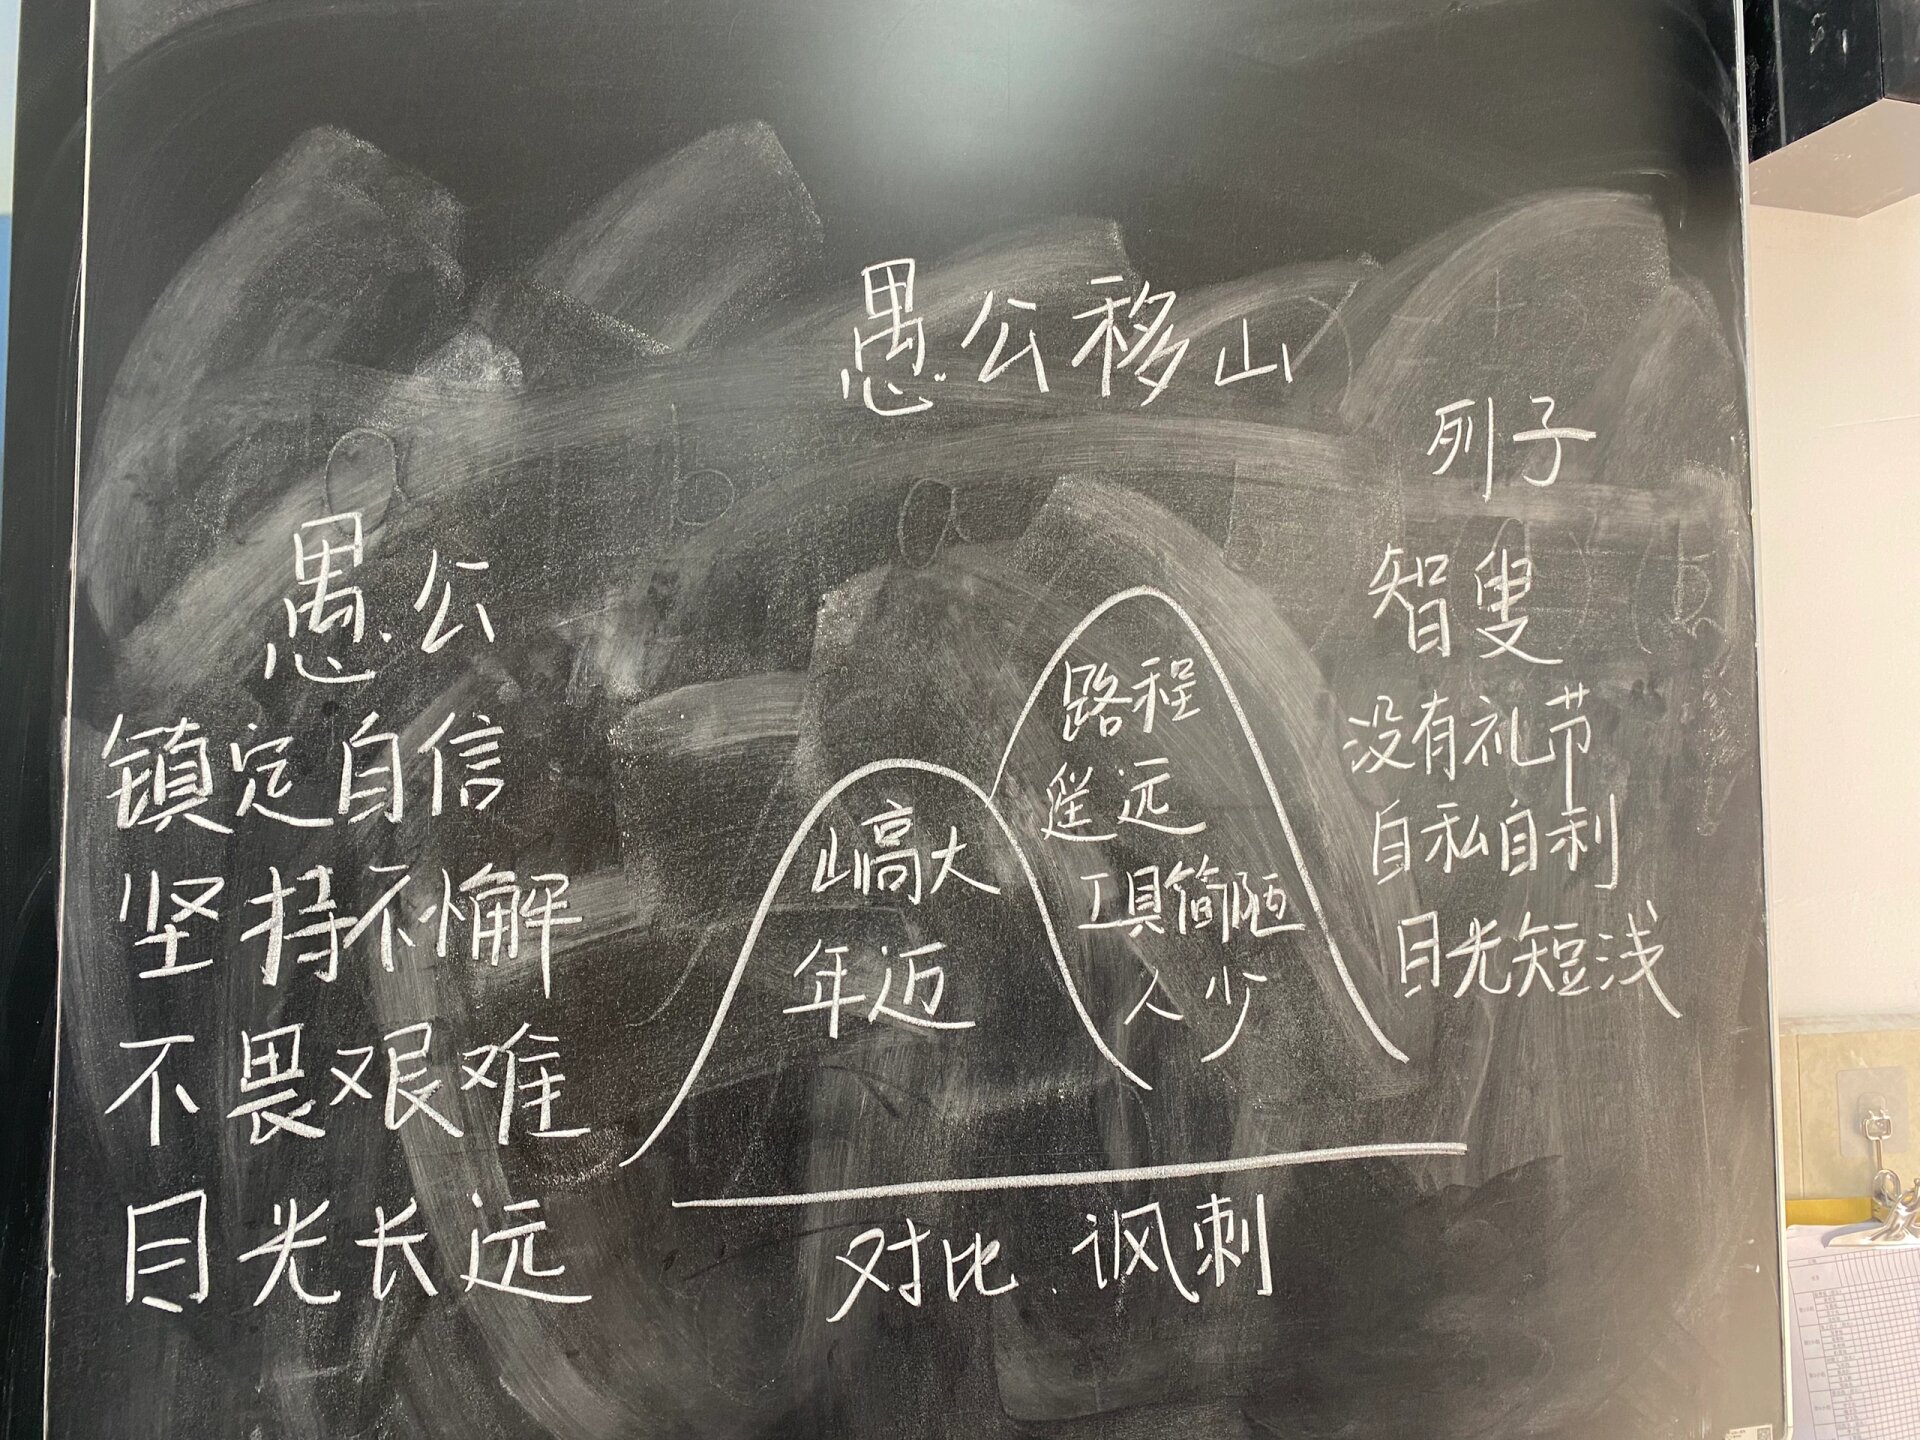 愚公移山
列子
愚公
镇定自信
坚持不懈
不畏艰难
目光长远
山高大
年迈
路程
遥远
工具简陋
人少
智叟
没有礼节
自私自利
目光短浅
对比.讽刺